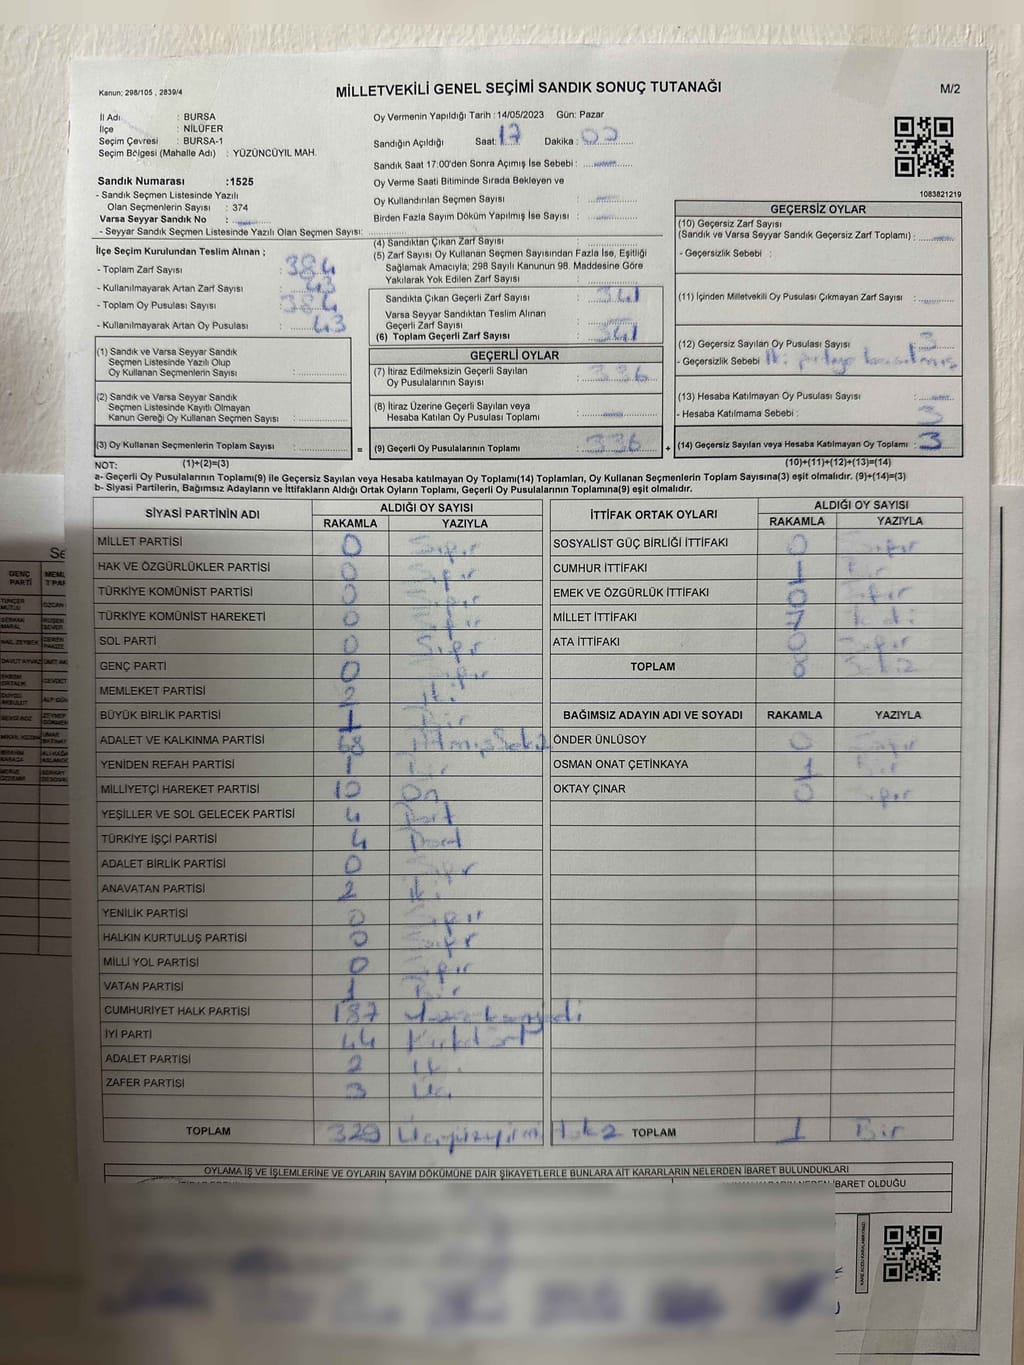 Kanun: 298/105 , 2839/4
MİLLETVEKİLİ GENEL SEÇİMİ SANDIK SONUÇ TUTANAĞI
M/2
İl Adı : BURSA
İlçe : NİLÜFER
Seçim Çevresi : BURSA-1
Seçim Bölgesi (Mahalle Adı) : YÜZÜNCÜYIL MAH.
Sandık Numarası :1525
- Sandık Seçmen Listesinde Yazılı
Olan Seçmenlerin Sayısı : 374
Varsa Seyyar Sandık No :
- Seyyar Sandık Seçmen Listesinde Yazılı Olan Seçmen Sayısı:
Oy Vermenin Yapıldığı Tarih :14/05/2023 Gün: Pazar
Sandığın Açıldığı Saat: 17 Dakika: 00
Sandık Saat 17:00'den Sonra Açımış İse Sebebi :
Oy Verme Saati Bitiminde Sırada Bekleyen ve
Oy Kullandırılan Seçmen Sayısı :
Birden Fazla Sayım Döküm Yapılmış İse Sayısı :
1083821219
İlçe Seçim Kurulundan Teslim Alınan ;
- Toplam Zarf Sayısı : 384
- Kullanılmayarak Artan Zarf Sayısı : 43
- Toplam Oy Pusulası Sayısı : 384
- Kullanılmayarak Artan Oy Pusulası : 43
(1) Sandık ve Varsa Seyyar Sandık
Seçmen Listesinde Yazılı Olup
Oy Kullanan Seçmenlerin Sayısı :
(2) Sandık ve Varsa Seyyar Sandık
Seçmen Listesinde Kayıtlı Olmayan
Kanun Gereği Oy Kullanan Seçmen Sayısı :
(3) Oy Kullanan Seçmenlerin Toplam Sayısı :
=
(4) Sandıktan Çıkan Zarf Sayısı :
(5) Zarf Sayısı Oy Kullanan Seçmen Sayısından Fazla İse, Eşitliği
Sağlamak Amacıyla; 298 Sayılı Kanunun 98. Maddesine Göre
Yakılarak Yok Edilen Zarf Sayısı :
Sandıkta Çıkan Geçerli Zarf Sayısı : 341
Varsa Seyyar Sandıktan Teslim Alınan
Geçerli Zarf Sayısı :
(6) Toplam Geçerli Zarf Sayısı : 341
GEÇERLİ OYLAR
(7) İtiraz Edilmeksizin Geçerli Sayılan
Oy Pusulalarının Sayısı : 336
(8) İtiraz Üzerine Geçerli Sayılan veya
Hesaba Katılan Oy Pusulası Toplamı :
(9) Geçerli Oy Pusulalarının Toplamı : 336
+
GEÇERSİZ OYLAR
(10) Geçersiz Zarf Sayısı
(Sandık ve Varsa Seyyar Sandık Geçersiz Zarf Toplamı) :
- Geçersizlik Sebebi :
(11) İçinden Milletvekili Oy Pusulası Çıkmayan Zarf Sayısı :
(12) Geçersiz Sayılan Oy Pusulası Sayısı : 3
- Geçersizlik Sebebi : İki partiye basılmış
(13) Hesaba Katılmayan Oy Pusulası Sayısı :
- Hesaba Katılmama Sebebi : 3
(14) Geçersiz Sayılan veya Hesaba Katılmayan Oy Toplamı : 3
NOT: (1)+(2)=(3)
(10)+(11)+(12)+(13)=(14)
a- Geçerli Oy Pusulalarının Toplamı(9) ile Geçersiz Sayılan veya Hesaba katılmayan Oy Toplamı(14) Toplamları, Oy Kullanan Seçmenlerin Toplam Sayısına(3) eşit olmalıdır. (9)+(14)=(3)
b- Siyasi Partilerin, Bağımsız Adayların ve İttifakların Aldığı Ortak Oyların Toplamı, Geçerli Oy Pusulalarının Toplamına(9) eşit olmalıdır.
SİYASİ PARTİNİN ADI ALDIĞI OY SAYISI
RAKAMLA YAZIYLA
MİLLET PARTİSİ 0 Sıfır
HAK VE ÖZGÜRLÜKLER PARTİSİ 0 Sıfır
TÜRKİYE KOMÜNİST PARTİSİ 0 Sıfır
TÜRKİYE KOMÜNİST HAREKETİ 0 Sıfır
SOL PARTİ 0 Sıfır
GENÇ PARTİ 0 Sıfır
MEMLEKET PARTİSİ 2 İki
BÜYÜK BİRLİK PARTİSİ 1 Bir
ADALET VE KALKINMA PARTİSİ 68 Altmış Sekiz
YENİDEN REFAH PARTİSİ 1 Bir
MİLLİYETÇİ HAREKET PARTİSİ 10 On
YEŞİLLER VE SOL GELECEK PARTİSİ 4 Dört
TÜRKİYE İŞÇİ PARTİSİ 4 Dört
ADALET BİRLİK PARTİSİ 0 Sıfır
ANAVATAN PARTİSİ 2 İki
YENİLİK PARTİSİ 0 Sıfır
HALKIN KURTULUŞ PARTİSİ 0 Sıfır
MİLLİ YOL PARTİSİ 0 Sıfır
VATAN PARTİSİ 1 Bir
CUMHURİYET HALK PARTİSİ 187
İYİ PARTİ 44 Kırkdört
ADALET PARTİSİ 2 İki
ZAFER PARTİSİ 3 Üç
TOPLAM 329
İTTİFAK ORTAK OYLARI ALDIĞI OY SAYISI
RAKAMLA YAZIYLA
SOSYALİST GÜÇ BİRLİĞİ İTTİFAKI 0 Sıfır
CUMHUR İTTİFAKI 1 Bir
EMEK VE ÖZGÜRLÜK İTTİFAKI 0 Sıfır
MİLLET İTTİFAKI 7 Yedi
ATA İTTİFAKI 0 Sıfır
TOPLAM 8 Sekiz
BAĞIMSIZ ADAYIN ADI VE SOYADI RAKAMLA YAZIYLA
ÖNDER ÜNLÜSOY 0 Sıfır
OSMAN ONAT ÇETİNKAYA 1 Bir
OKTAY ÇINAR 0 Sıfır
TOPLAM 1 Bir
OYLAMA İŞ VE İŞLEMLERİNE VE OYLARIN SAYIM DÖKÜMÜNE DAİR ŞİKAYETLERLE BUNLARA AİT KARARLARIN NELERDEN İBARET BULUNDUKLARI
İBARET OLDUĞU